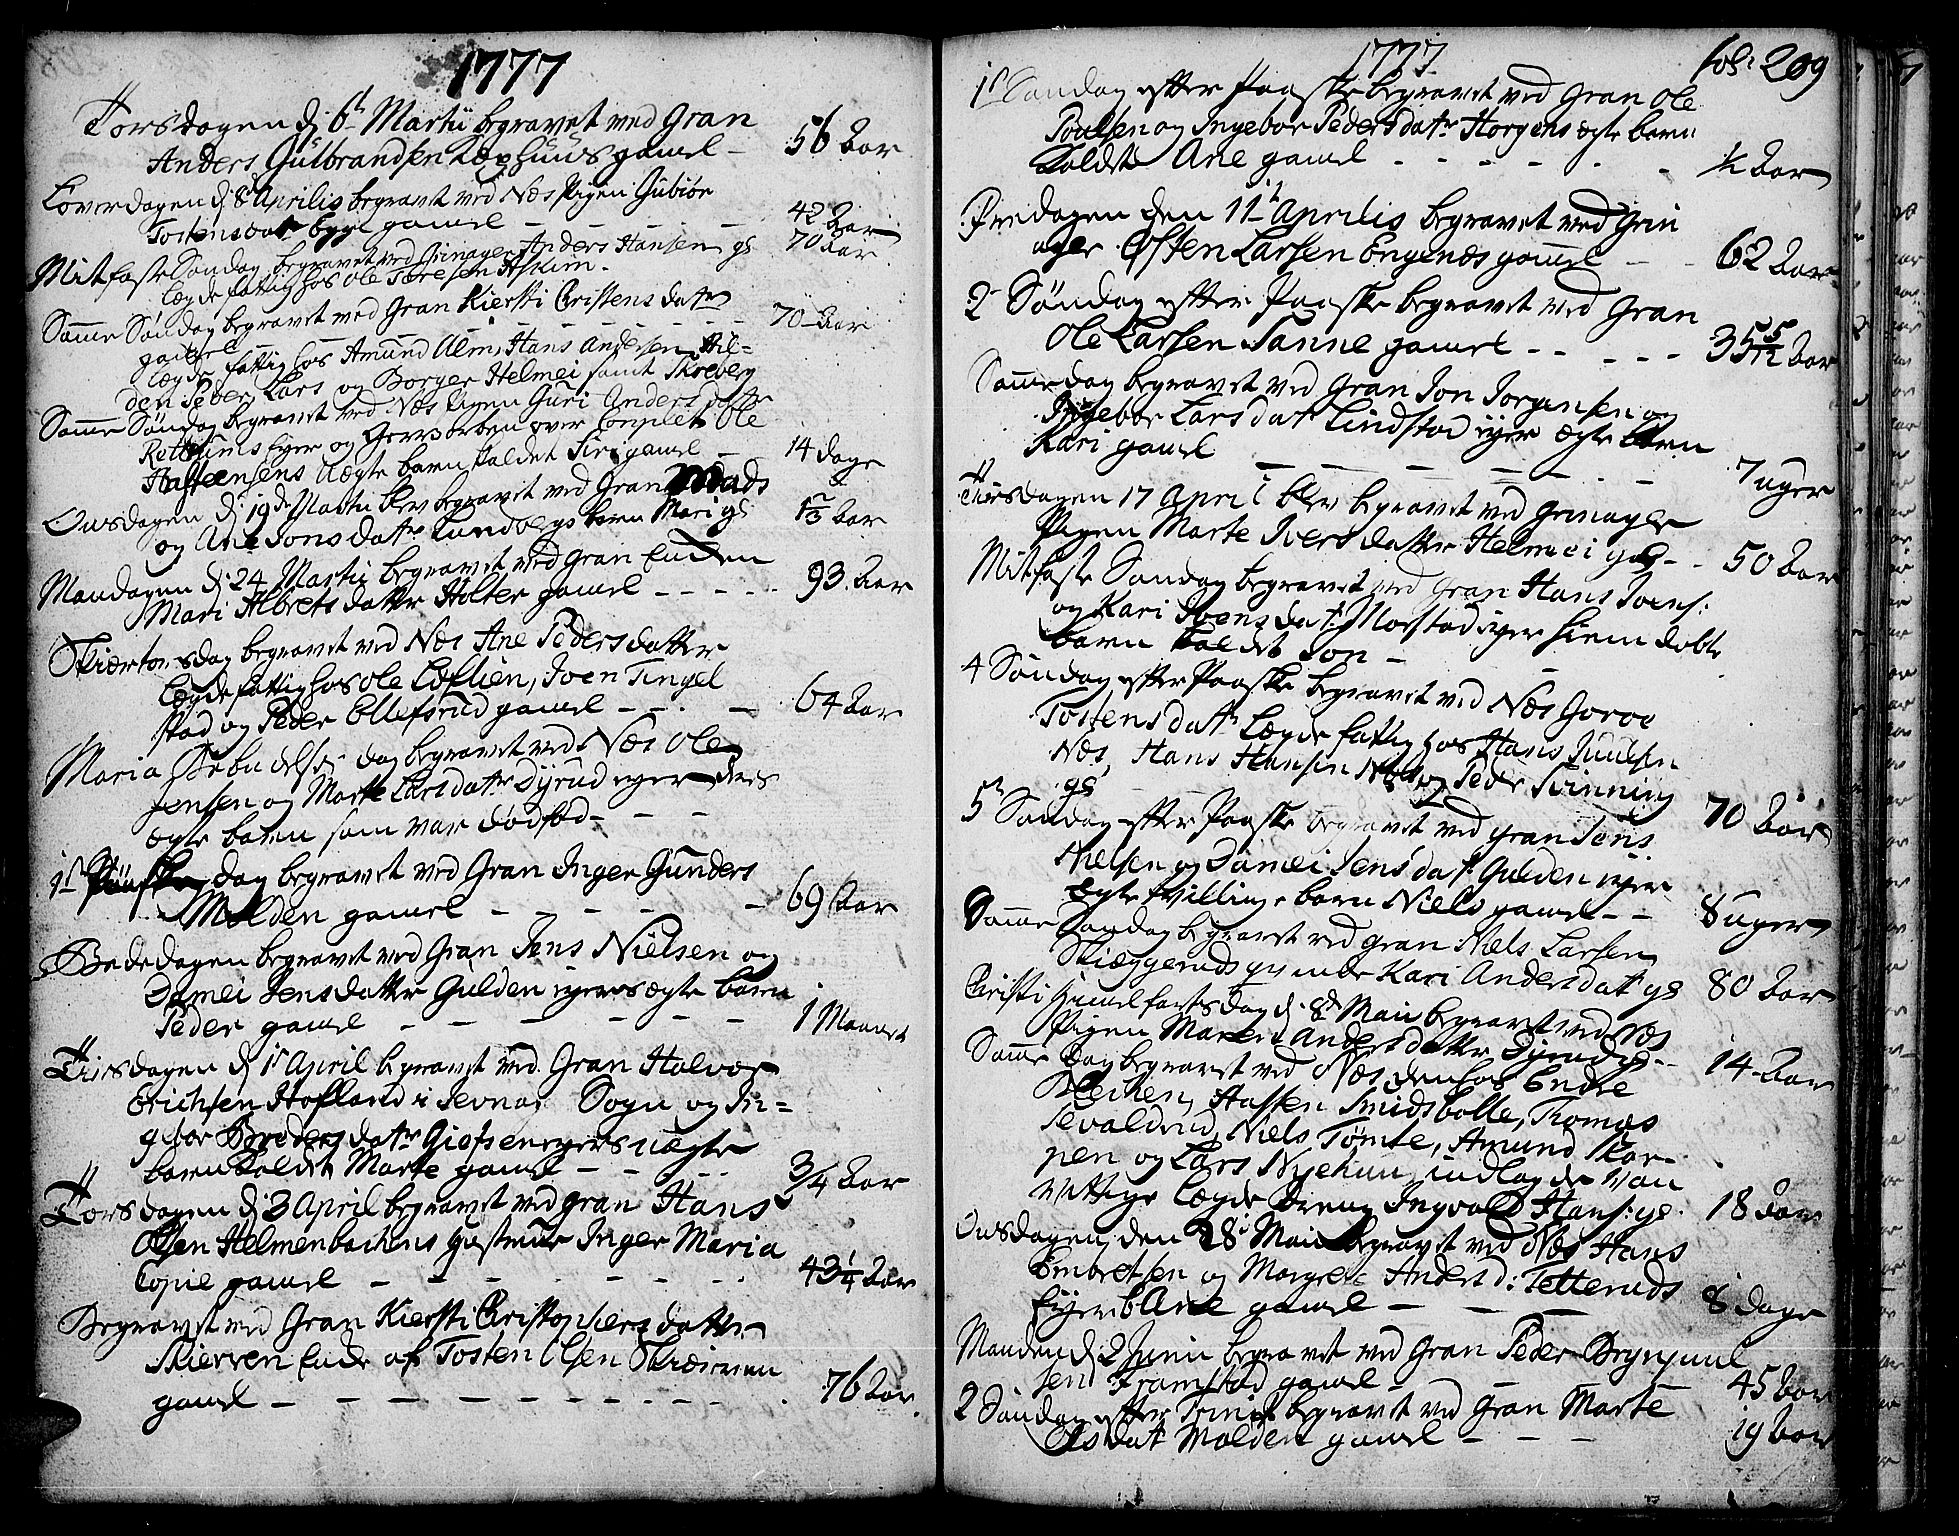 1777
Torsdagen d. 6t Martii begravet ved Gran
Anders Gulbrandsen Kæxhuus gamel — 56 Aar
Løverdagen d. 8d Aprilis begravet ved Næs Pigen Gubiør
Tostensdatr Bygl gamel — 42 Aar
Mitfaste Søndag begravet ved Grinager Anders Hansen gl 70 Aar
Lægds fattig hos Ole Toresen Askim.
Samme Søndag begravet ved Gran Kiersti Cristens datr
gamel — 70 Aar
lægds fattig hos Amund Alm, Hans Andersen Hil=
den Peder, Lars og Borger Helmei samt Skreberg
Samme Søndag begravet ved Næs Pigen Guri Anders datter
Rettums Eyer og Gerv Torben over Conplet Ole
Halsteensens uægte barn kaldet Siri gamel — 14 dage
Onsdagen d. 19de Martii blev begravet ved Gran Mads
og Ane Jons datr Lundbergs barn Mari gl 1/3 Aar
Mandagen d. 24 Martii begravet ved Gran Enken
Mari Albrets datter Holter gamel — 93 Aar
Skiertorsdag begravet ved Næs Ane Peders datter
lægds fattig hos Ole Løflien, Joen Tingel
stad og Peder Ellefsrud gamel — 64 Aar
Maria Bebudelses dag begravet ved Næs Ole
Jensen og Marte Larsdatr Dyrud eyer deres
ægte barn som var dødfød —
1st Paaske dag begravet ved Gran Inger Gunders
Molden gamel — 69 Aar
Bededagen begravet ved Gran Jens Nielsen og
Damei Jensdatter Gulden eyers ægte barn
Peder gamel — 1 Maanet
Tirsdagen d. 1st April begravet ved Gran Halvor
Erichsen Hofland i Jevnager Sogn og In=
gebor Breders datr Giefsen eyers uægte
barn kaldet Marte gamel — 3/4 Aar
Torsdagen d. 3 April begravet ved Gran Hans
Olsen Helmenbachens Hustrue Inger Maria
Copie gamel — 43 1/4 Aar
Begravet ved Gran Kiersti Christophers datter
Skierven Enke af Tosten Olsen Skierven
gamel — 76 Aar
1777 fol: 209
1st Søndag efter Paaske begravet ved Gran Ole
Poulsen og Ingebor Pedersdatr Horgens ægte barn
kaldet Ane gamel — 1/4 Aar
Fredagen den 11t Aprilis begravet ved Grin
ager Østen Larsen Engenæs gamel — 62 Aar
2 Søndag efter Paaske begravet ved Gran
Ole Larsen Sanne gamel — 35 5/12 Aar
Samme dag begravet ved Gran Jon Jorgensen og
Ingebor Larsdatr Lindstad eyer ægte barn
Kari gamel — 7 uger
Tirsdagen 17 April blev begravet ved Grinager
Pigen Marte Ivers datter Helmei gl — 50 Aar
Mitfaste Søndag begravet ved Gran Hans Joens:
og Kari Joens datr Morstad eyer hiemdøbte
barn kaldet Jon —
4 Søndag efter Paaske begravet ved Næs Goroe
Tostensdatr Lægds fattig hos Hans Juulsen
Næs, Hans Hansen Næs og Peder Svinning
gl — 70 Aar
5t Søndag efter Paaske begravet ved Gran Jens
Nielsen og Damei Jens datr Gulden eyer
Ægte tvillinge barn Niels gamel — 8 uger
Samme Søndag begravet ved Gran Niels Larsen
Skiæggeruds qvinde Kari Anders datr gl 80 Aar
Christi Himelfartsdag d. 8d Maii begravet ved Næs
Pigen Maren Anders datter Dyrud gl — 14 Aar
Samme Dag begravet ved Næs den hos Endre
Bleiken, Hasten Smidsbolle, Thomas
Sevaldrud, Niels Tømte, Amund Skar=
pen og Lars Nyehuus indlagde Van
vittige Lægds dreng Ingvold Hans: gl. 18 Aar
Onsdagen den 28d Maii begravet ved Næs Hans
Embretsen og Margrete Anders d: Tetteruds
Eyer b Ane gamel — 8 dage
Manden d. 2 Junii begravet ved Gran Peder Brynjuul
sen Framstad gamel — 45 Aar
2 Søndag efter Trinit begravet ved Gran Marte
Olsdatr Molden gamel — 19 Aar